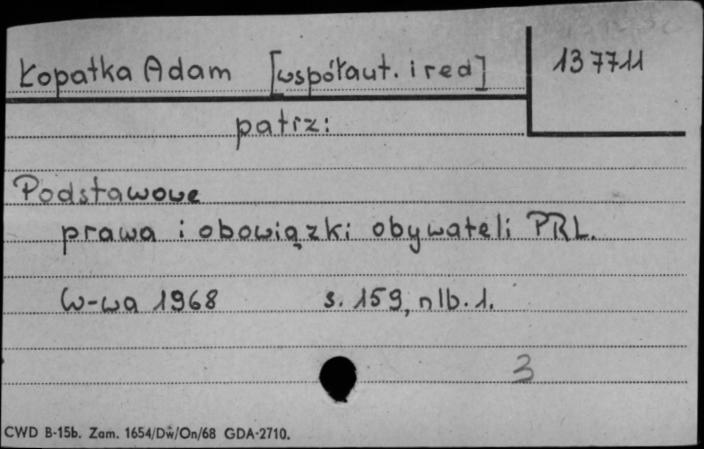 Łopatka Adam [współaut. i red] 137711
patrz:
Podstawowe
prawa i obowiązki obywateli PRL.
W-wa 1968 s. 159, nlb. 1.
3
CWD B-15b. Zam. 1654/Dw/On/68 GDA-2710.